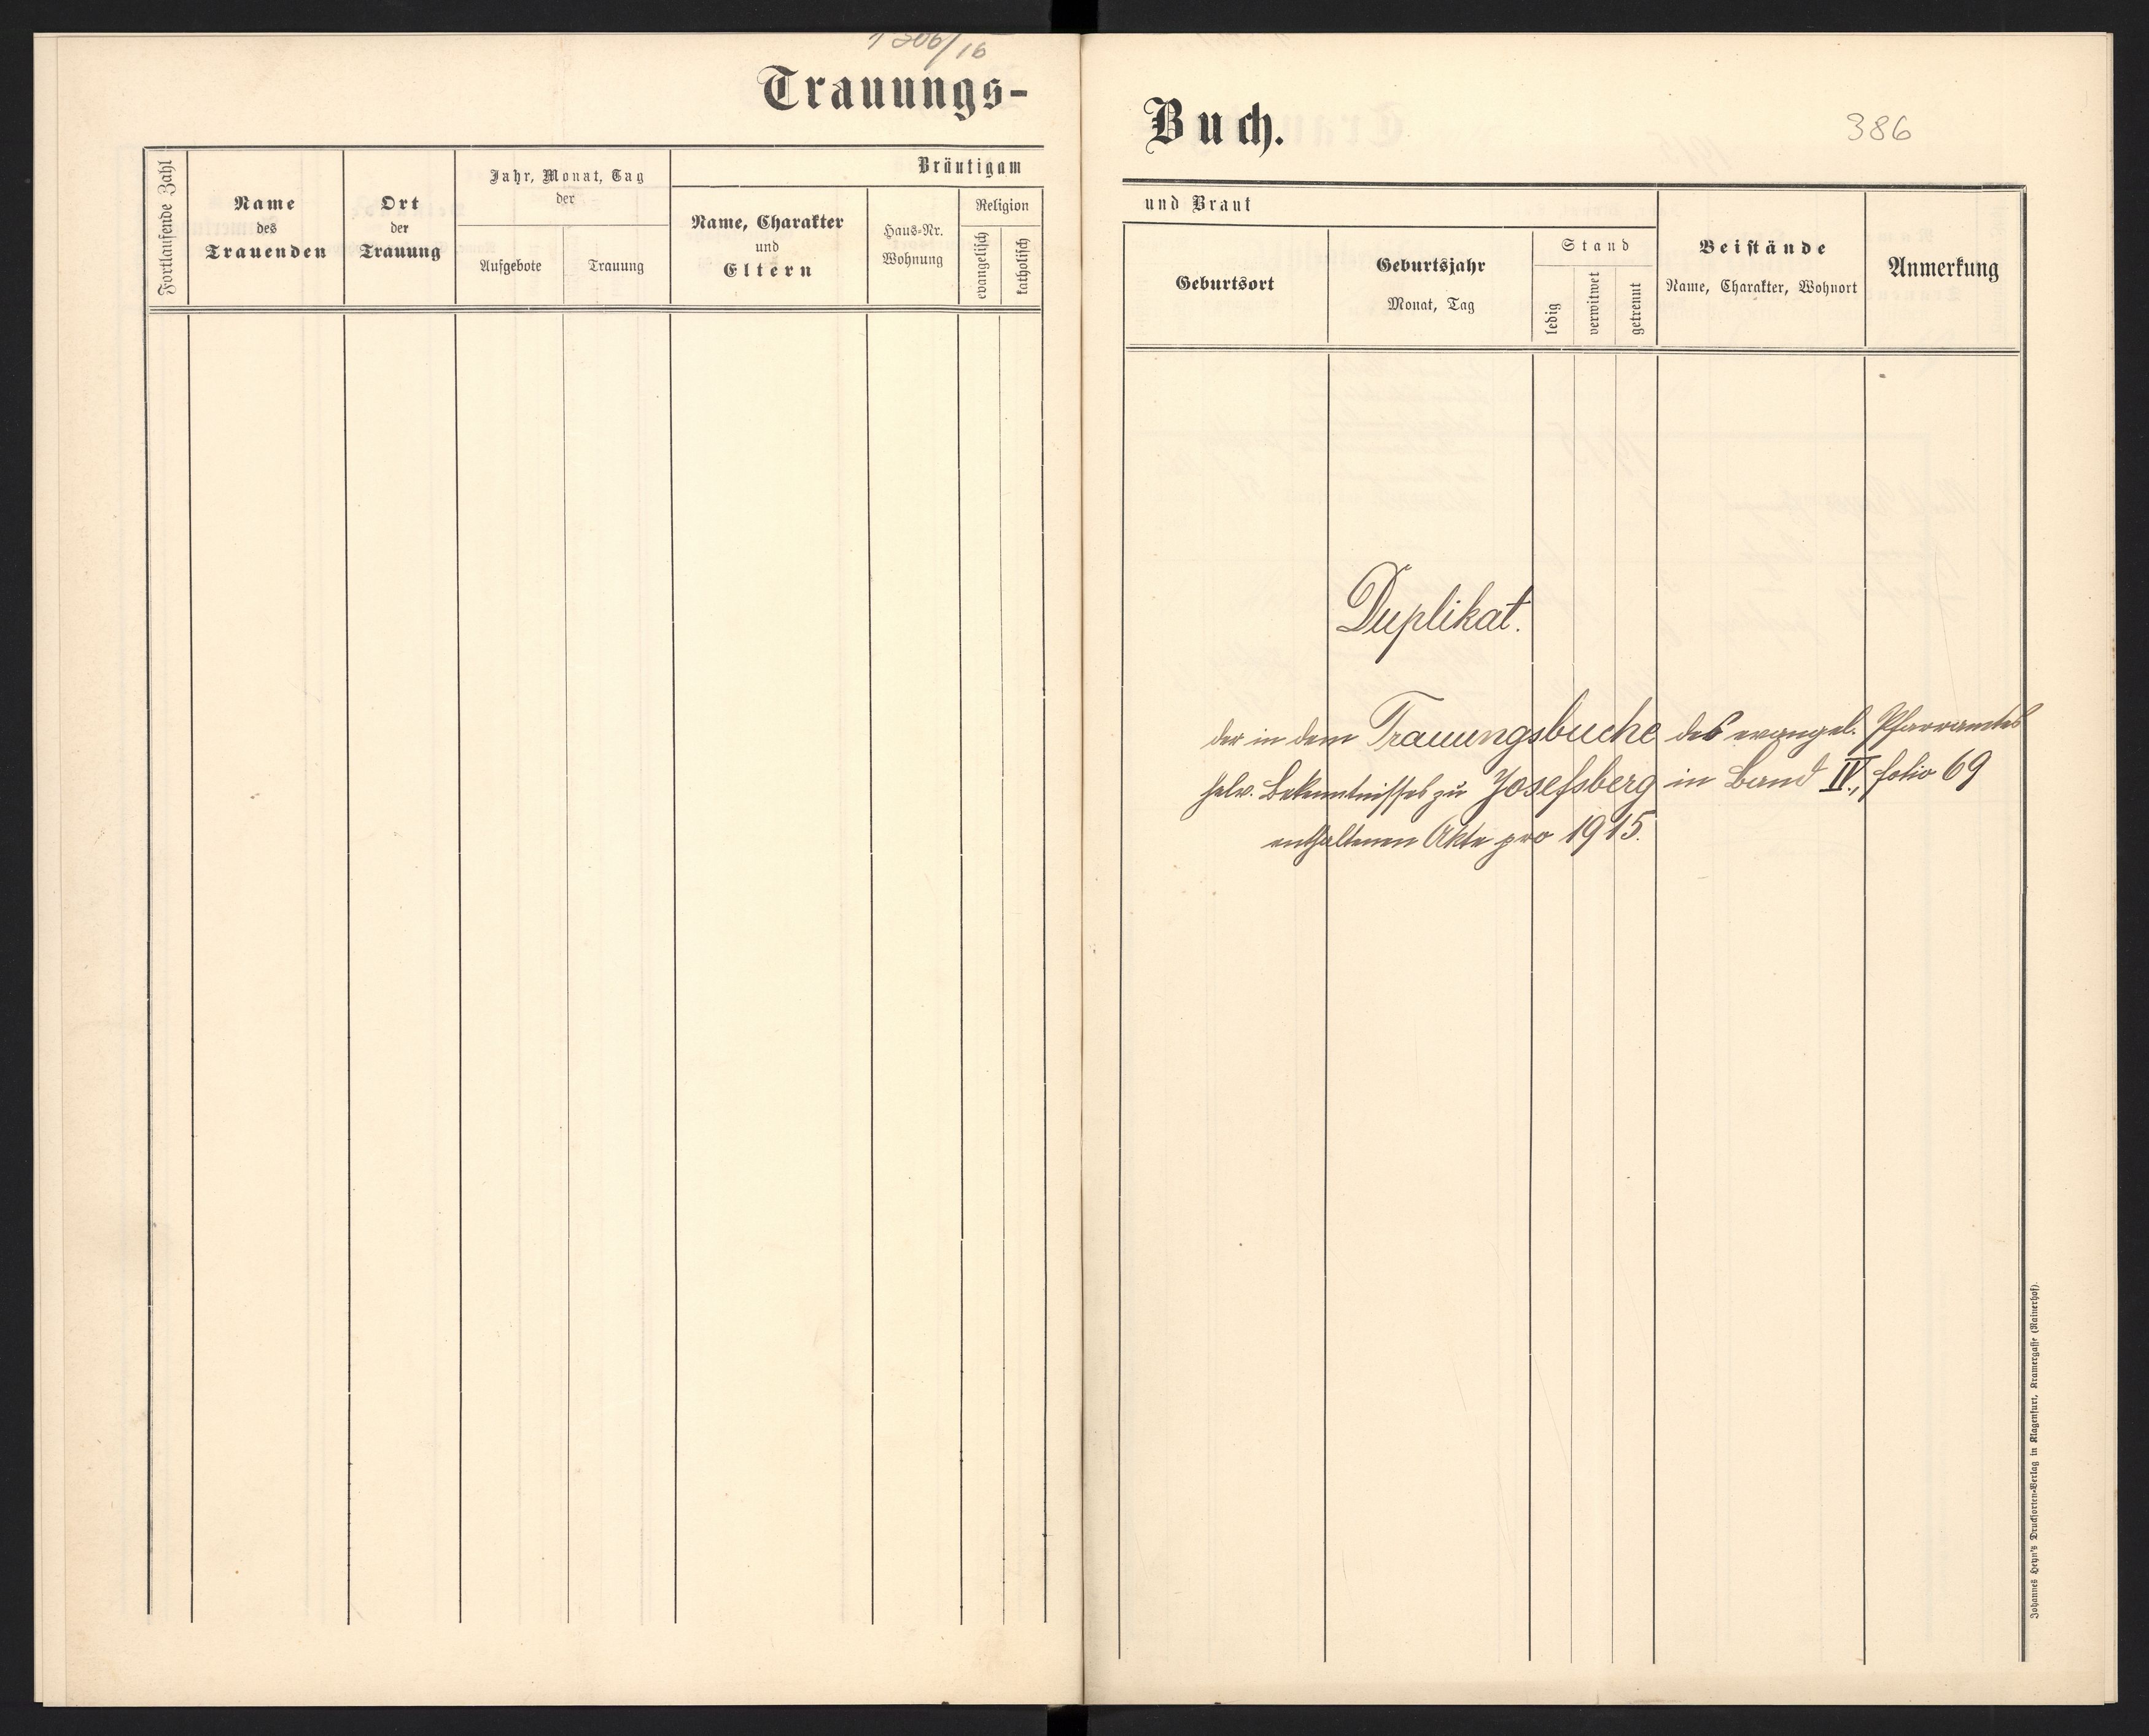 306/16
Trauungs-
Fortlaufende Zahl
Name
des
Trauenden
Ort
der
Trauung
Jahr, Monat, Tag
der
Aufgebote
Trauung
Bräutigam
Name, Charakter
und
Eltern
Haus-Nr.
Wohnung
Religion
evangelisch
katholisch
Buch.
386
und Braut
Geburtsort
Geburtsjahr
Monat, Tag
Stand
ledig
verwitwet
getrennt
Beistände
Name, Charakter, Wohnort
Anmerkung
Duplikat.
der in dem Trauungsbuche des evangel. Pfarramtes
helv. Bekenntnisses zu Josefsberg in Band IV., folio 69
enthaltenen Akte pro 1915.
Johannes Heyn's Drucksorten-Verlag in Klagenfurt, Kramergasse (Rainerhof).